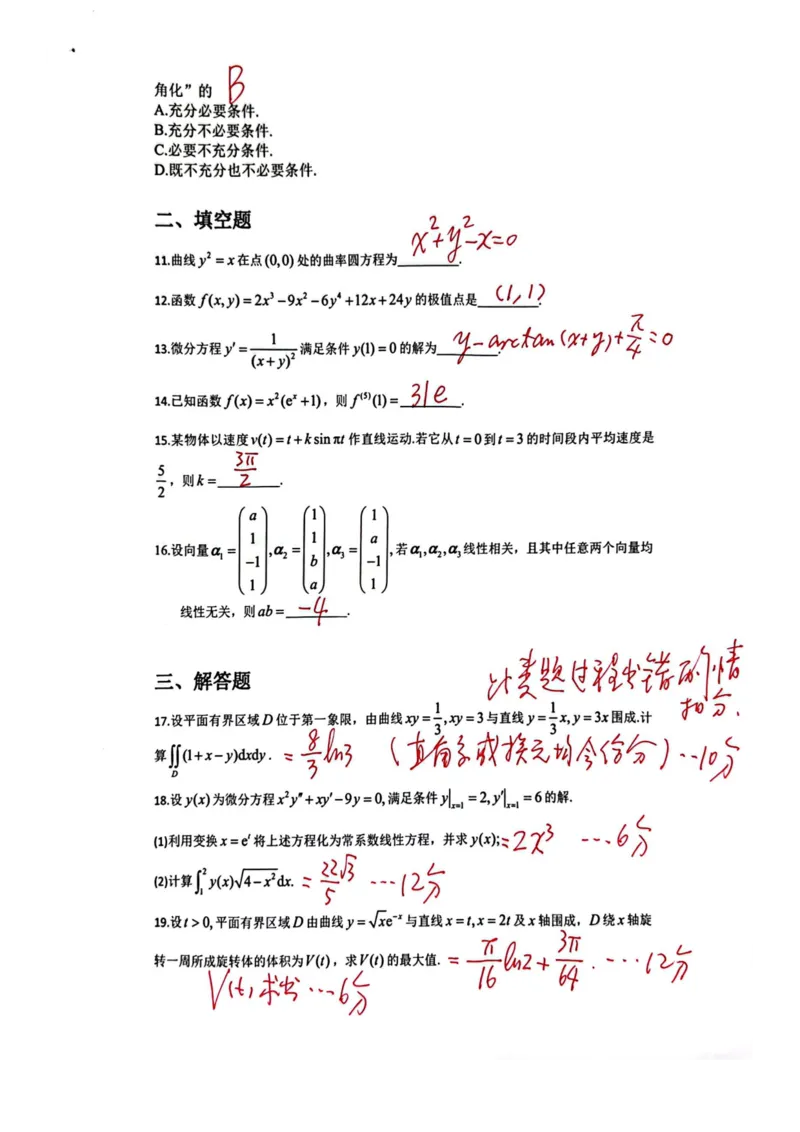 角化”的 B
A.充分必要条件.
B.充分不必要条件.
C.必要不充分条件.
D.既不充分也不必要条件.
二、填空题
11.曲线 y² = x 在点 (0,0) 处的曲率圆方程为 x²+y²-x=0 .
12.函数 f(x,y) = 2x³ − 9x² − 6y⁴ + 12x + 24y 的极值点是 (1,1) .
13.微分方程 y' = 1/(x+y)² 满足条件 y(1) = 0 的解为 y-arctan(x+y)+π/4=0 .
14.已知函数 f(x) = x²(eˣ + 1), 则 f⁽⁵⁾(1) = 31e .
15.某物体以速度 v(t) = t + k sin πt 作直线运动.若它从 t = 0 到 t = 3 的时间段内平均速度是
5/2, 则 k = 3π/2 .
16.设向量 α₁ = (a, 1, −1, 1), α₂ = (1, 1, b, a), α₃ = (1, a, −1, 1), 若 α₁, α₂, α₃ 线性相关，且其中任意两个向量均
线性无关，则 ab = -4 .
三、解答题
计算题过程出错酌情
扣分.
17.设平面有界区域 D 位于第一象限，由曲线 xy = 1/3, xy = 3 与直线 y = 1/3 x, y = 3x 围成.计
算 ∬_D (1 + x − y)dxdy . = 8/3 ln3 (直角系或换元均会给分) …10分
18.设 y(x) 为微分方程 x²y'' + xy' − 9y = 0, 满足条件 y|ₓ₌₁ = 2, y'|ₓ₌₁ = 6 的解.
(1)利用变换 x = eᵗ 将上述方程化为常系数线性方程，并求 y(x); =2x³ …6分
(2)计算 ∫₁² y(x)√(4 − x²)dx. = 22√3/5 …12分
19.设 t > 0, 平面有界区域 D 由曲线 y = √x e⁻ˣ 与直线 x = t, x = 2t 及 x 轴围成，D 绕 x 轴旋
转一周所成旋转体的体积为 V(t)，求 V(t) 的最大值. = π/16 ln2 + 3π/64 . …12分
V(t)求出 …6分